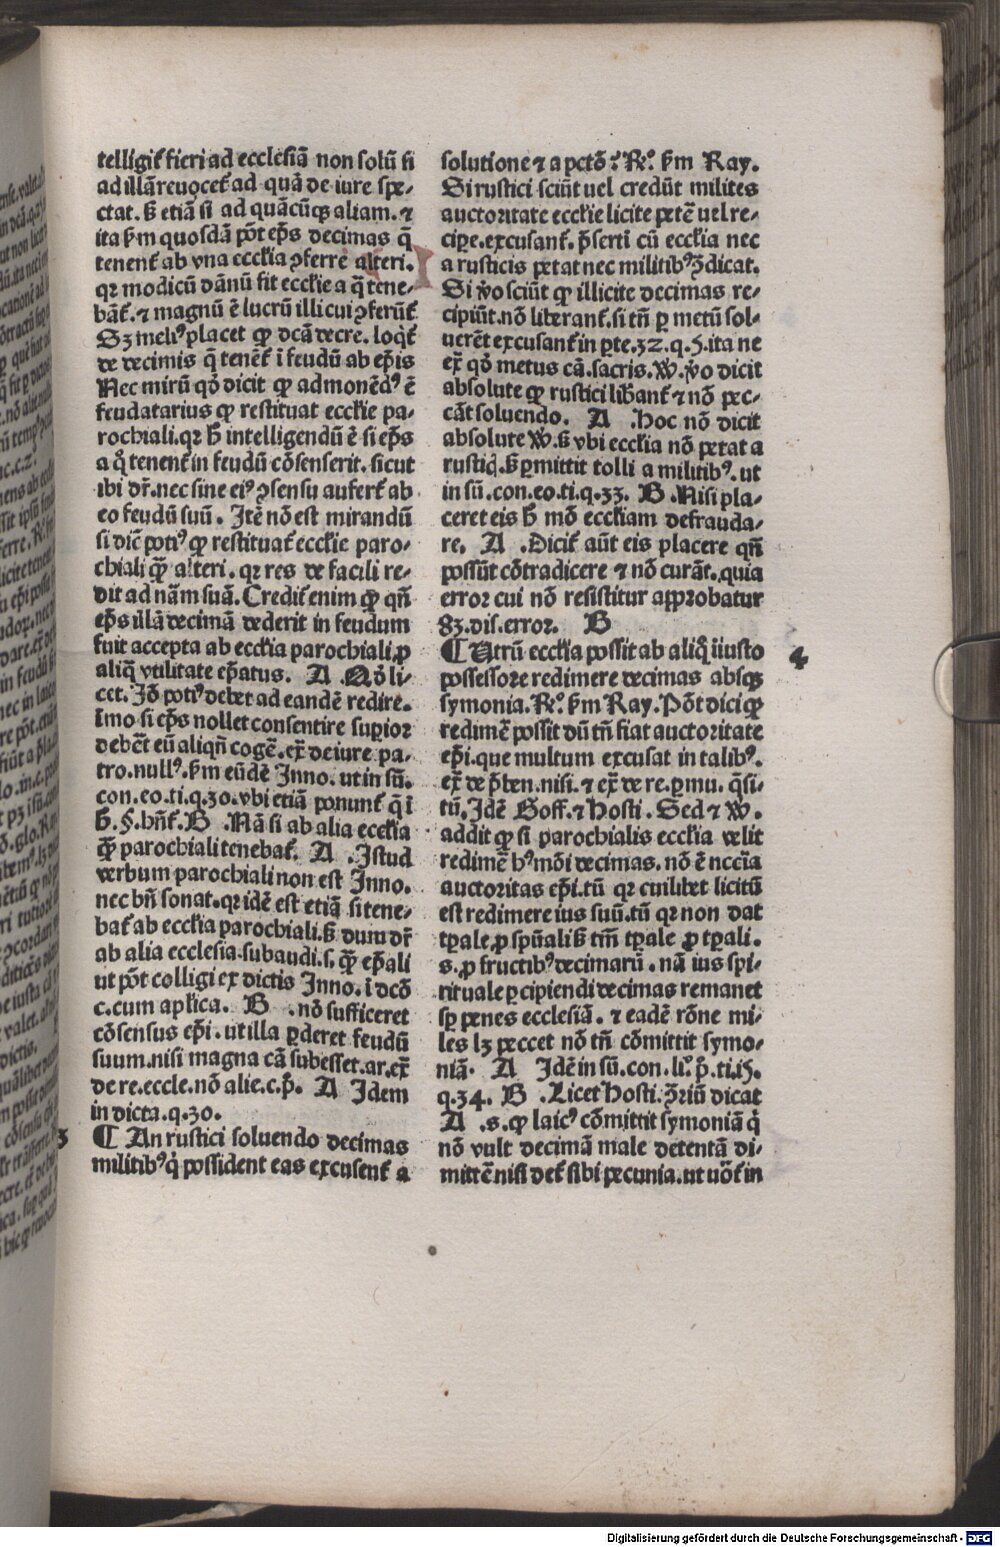 telligit̃ fieri ad ecclesiã non solũ si
ad illã reuocet̃ ad quã de iure spe-
ctat. s̃ etiã si ad quãcũq̃ aliam. ⁊
ita s̃m quosdã põt ep̃s decimas q̃
tenent̃ ab vna eccĺia ꝯferre alteri.
qꝛ modicũ dãnũ fit eccĺie a q̃ tene-
bãt̃. ⁊ magnũ ẽ lucrũ illi cui ꝯferũt̃
Sꝫ meliꝰ placet ꝙ dcã decre. loqt̃
de decimis q̃ tenẽt̃ ĩ feudũ ab ep̃is
Nec mirũ qõ dicit ꝙ admonẽdꝰ ẽ
feudatarius ꝙ restituat eccĺie pa-
rochiali. qꝛ h̃ intelligendũ ẽ si ep̃s
a q̊ tenent̃ in feudũ cõsenserit. sicut
ibi dr̃. nec sine eiꝰ ꝯsensu aufert̃ ab
eo feudũ suũ. Itẽ nõ est mirandũ
si dic̃ potiꝰ ꝙ restituat̃ eccĺie paro-
chiali q̃ȝ alteri. qꝛ res de facili re-
dit ad nãm suã. Credit̃ enim ꝙ qñ
ep̃s illã decimã dederit in feudum
fuit accepta ab eccĺia parochiali ꝓ
aliq̃ vtilitate ep̃atus. A .Qõ li-
cet. Iõ potiꝰ debet ad eandẽ redire.
ĩmo si ep̃s nollet consentire supior
debẽt eũ aliqñ cogẽ. ex̃ de iure pa-
tro. nullꝰ. s̃m eũdẽ Inno. ut in sũ.
con. eo. ti. q. 30. vbi etiã ponunt̃ q̃ ĩ
h̃. §. hñt̃. B .Nã si ab alia eccĺia
q̃ȝ parochiali tenebat̃. A .Istud
verbum parochiali non est Inno.
nec bñ sonat. qꝛ idẽ est etiã si tene-
bat̃ ab eccĺia parochiali. s̃ dum dr̃
ab alia ecclesia. subaudi. s. q̃ȝ ep̃ali
ut põt colligi ex dictis Inno. ĩ dcõ
c. cum apĺica. B .nõ sufficeret
cõsensus ep̃i. ut illa ꝑderet feudũ
suum. nisi magna cã subesset. ar. ex̃
de re. eccle. nõ alie. c. p̃. A Idem
in dicta. q. 30.
3
¶ An rustici soluendo decimas
militibꝰ q̇ possident eas excusent̃ a
solutione ⁊ a pctõ? R̃º. s̃m Ray.
Si rustici sciũt uel credũt milites
auctoritate eccĺie licite petẽ uel re-
cipe. excusant̃. p̃serti cũ eccĺia nec
a rusticis petat nec militibꝰ p̃dicat.
Si ṽo sciũt ꝙ illicite decimas re-
cipiũt. nõ liberant̃. si tñ ꝑ metũ sol-
uerẽt excusant̃ in ꝑte. 32. q. 5. ita ne
ex̃ qõ metus cã. sacris. W. ṽo dicit
absolute ꝙ rustici liḃant̃ ⁊ nõ pec-
cãt soluendo. A .Hoc nõ dicit
absolute W̃. s̃ vbi eccĺia nõ petat a
rustiq̃. s̃ ꝑmittit tolli a militibꝰ. ut
in sũ. con. eo. ti. q. 33. B .Nisi pla-
ceret eis h̃ mõ eccĺiam defrauda-
re. A .Dicit̃ aũt eis placere qñ
possũt cõtradicere ⁊ nõ curãt. quia
error cui nõ resistitur approbatur
83. dis. error. B
4
¶ Utrũ eccĺia possit ab aliq̊ ĩiusto
possessore redimere decimas absq̃
symonia. R̃º. s̃m Ray. Põt dici ꝙ
redimẽ possit dũ tñ fiat auctoritate
ep̃i. que multum excusat in talibꝰ.
ex̃ de p̃ben. nisi. ⁊ ex̃ de re. ꝑmu. q̃si-
tũ. Idẽ Goff. ⁊ Hosti. Sed ⁊ W.
addit ꝙ si parochialis eccĺia velit
redimẽ hꝰmõi decimas. nõ ẽ nccĩa
auctoritas ep̃i. tũ qꝛ cuilibet licitũ
est redimere ius suũ. tũ qꝛ non dat
tp̃ale ꝓ spũali s̃ tm̃ tp̃ale ꝓ tp̃ali.
s. ꝓ fructibꝰ decimarũ. nã ius spi-
rituale ꝑcipiendi decimas remanet
sp̃ penes ecclesiã. ⁊ eadẽ rõne mi-
les lꝫ peccet nõ tñ cõmittit symo-
niã. A Idẽ in sũ. con. li. p̃. ti. 15.
q. 34. B .Licet Hosti. ꝯ̃riũ dicat
A .s. ꝙ laicꝰ cõmittit symoniã q̇
nõ vult decimã male detentã di-
mittẽ nisi det̃ sibi pecunia. ut uõt̃ in
Digitalisierung gefördert durch die Deutsche Forschungsgemeinschaft - DFG